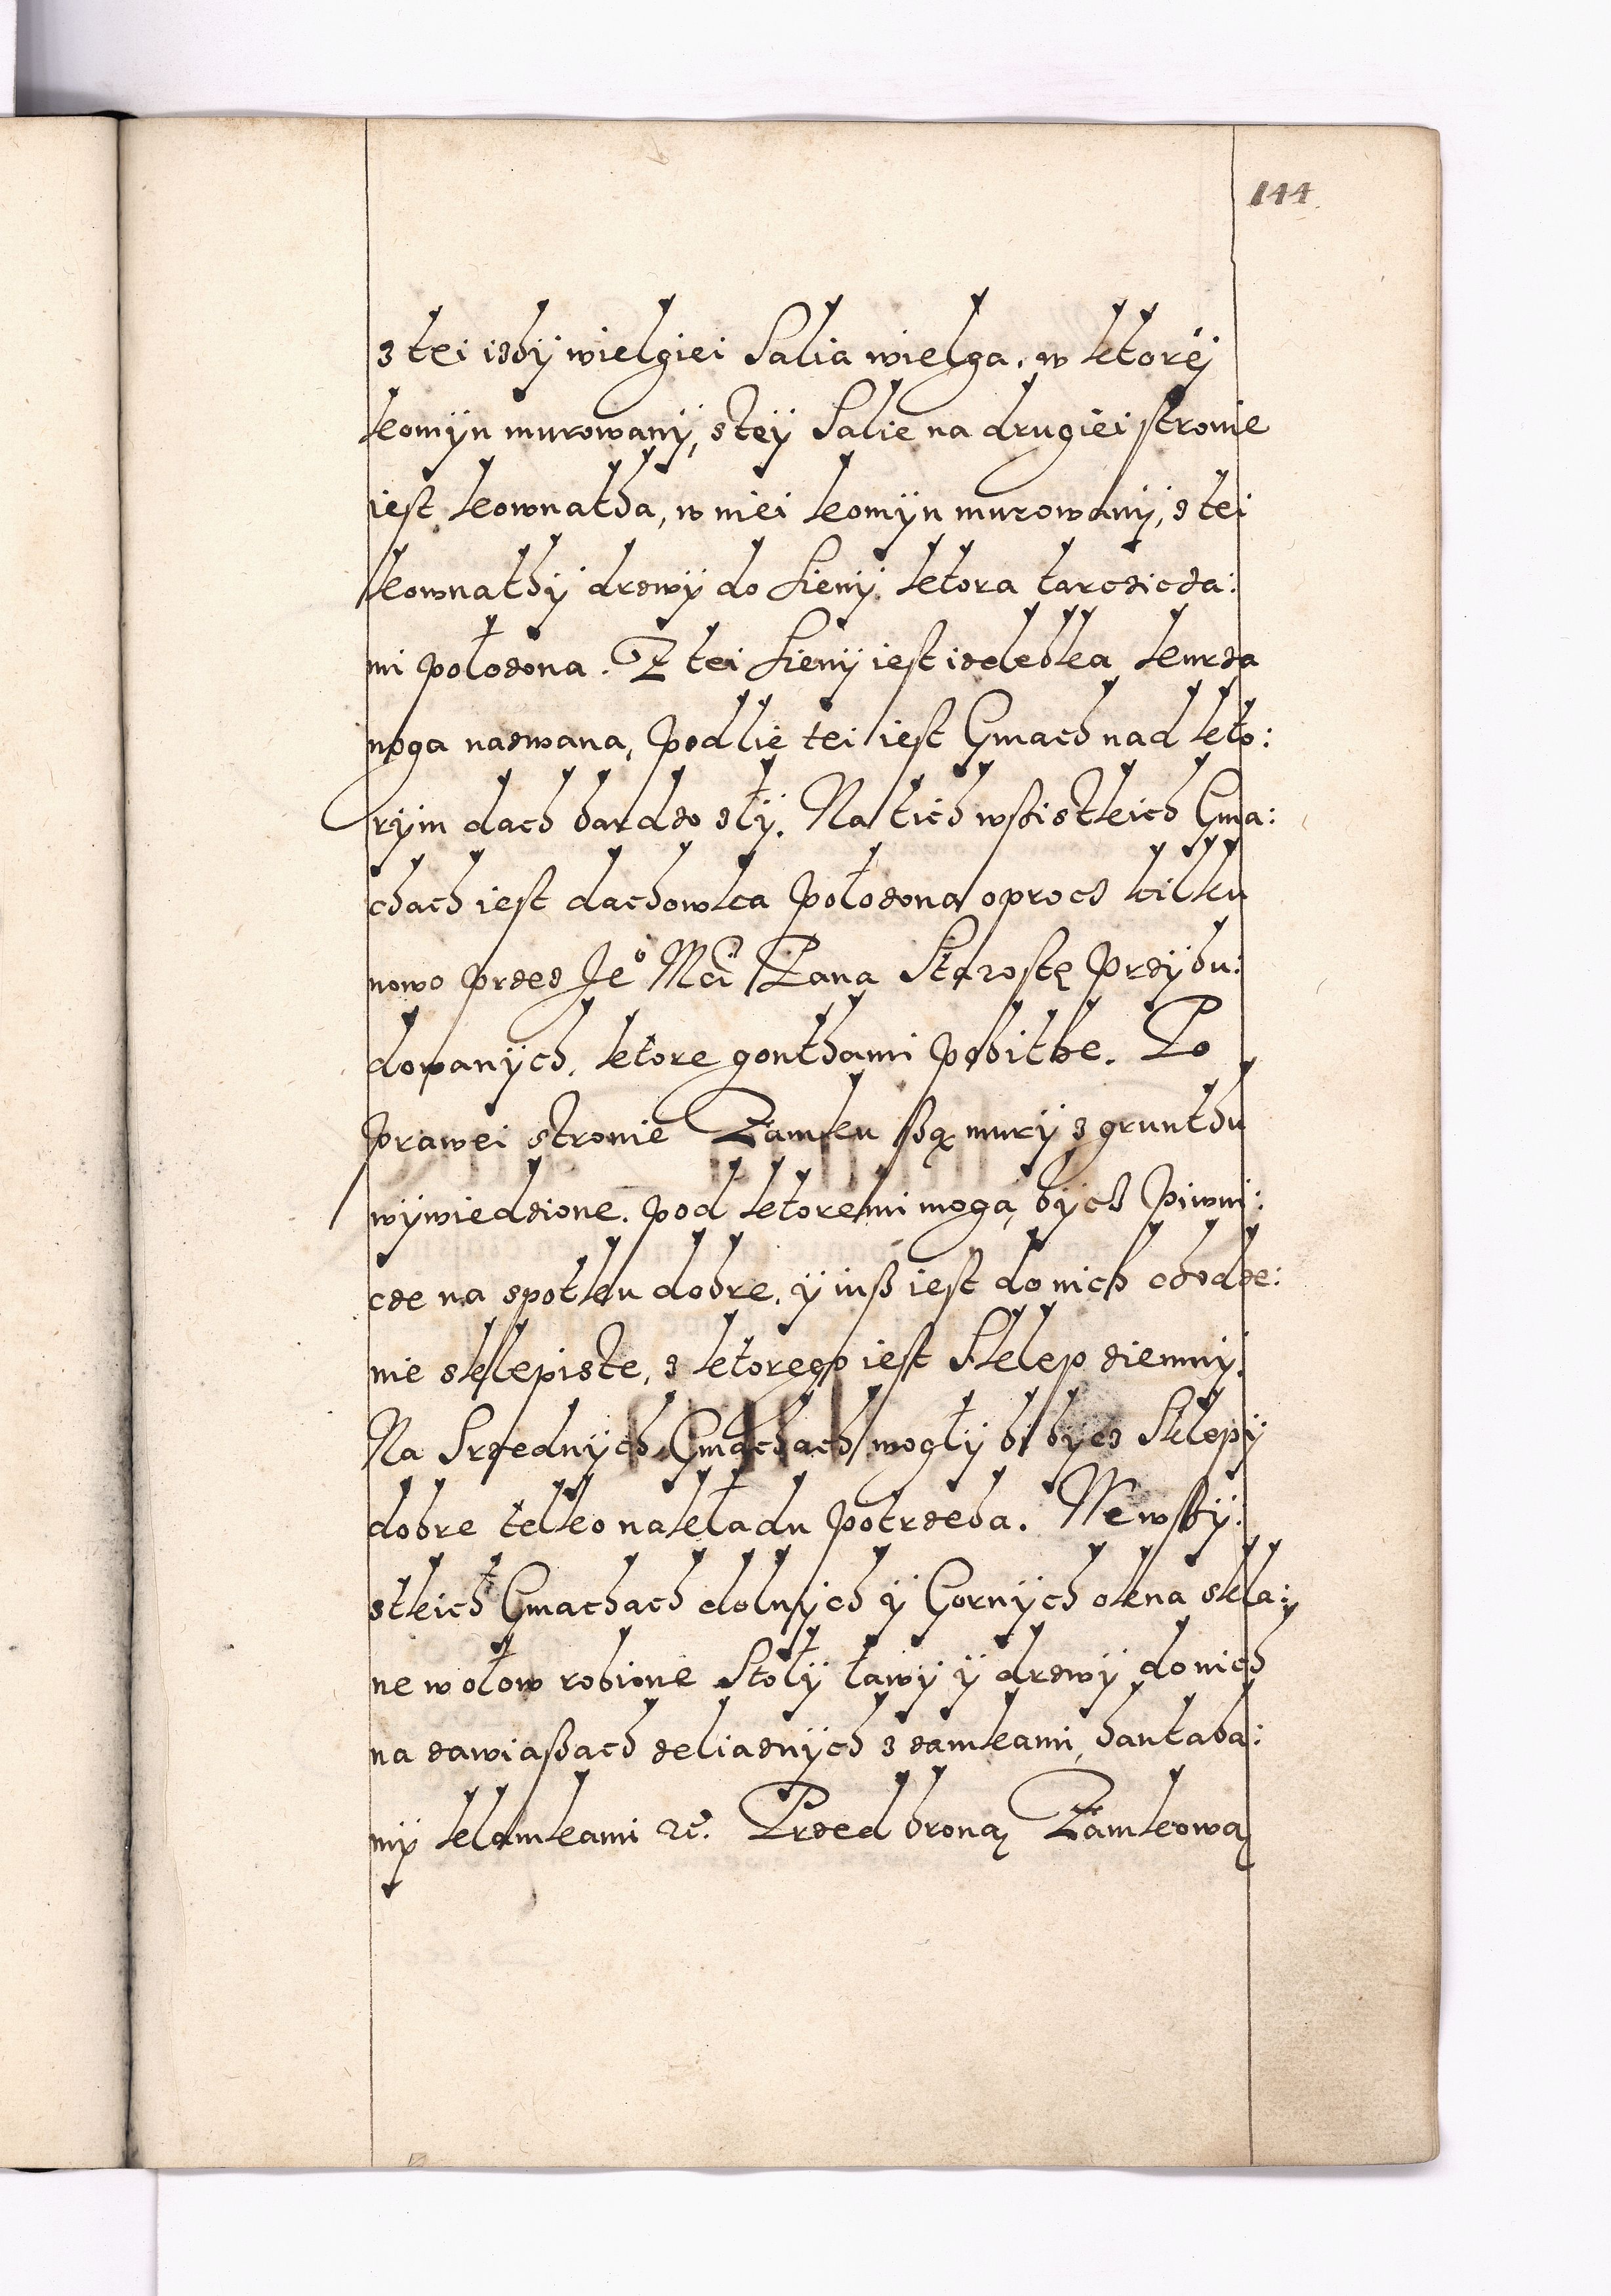 144
z tei izby wielgiei Salia wielga, w ktorej
komyn murowany, z tey Salie na drugiei stronie
iest kownatha, w niei komyn murowany, z tei
kownathy drzwy do Sieny, ktora tarczicza:
mi położona. Z tei Sieny iest izdebka kurza
noga nazwana, podlie tei iest Gmach nad kto:
rym dach bardzo zły. Na tich wßistkich Gma:
chach iest dachowka położona oprocz kilku
nowo przez Je° Mći Pana Starostę przybu:
dowanych, ktore gonthami pobithe. Po
prawei stronie Zamku ßą mury z grunthu
wywiedzione, pod ktoremi mogą bycz piwni:
cze na spotku dobre, y iuß iest do nich chodze:
nie sklepiste, z ktorego iest Sklep ziemny.
Na Srzednych Gmachach mogły bi bycz Sklepy
dobre telko nakładu potrzeba. We wßy:
stkich Gmachach dolnych y Gornych okna skla:
ne w ołow robione Stoły ławy y drzwy do nich
na zawiaßach zeliaznych z zamkami, hantaba:
my klamkami ꝛc. Przed broną Zamkową